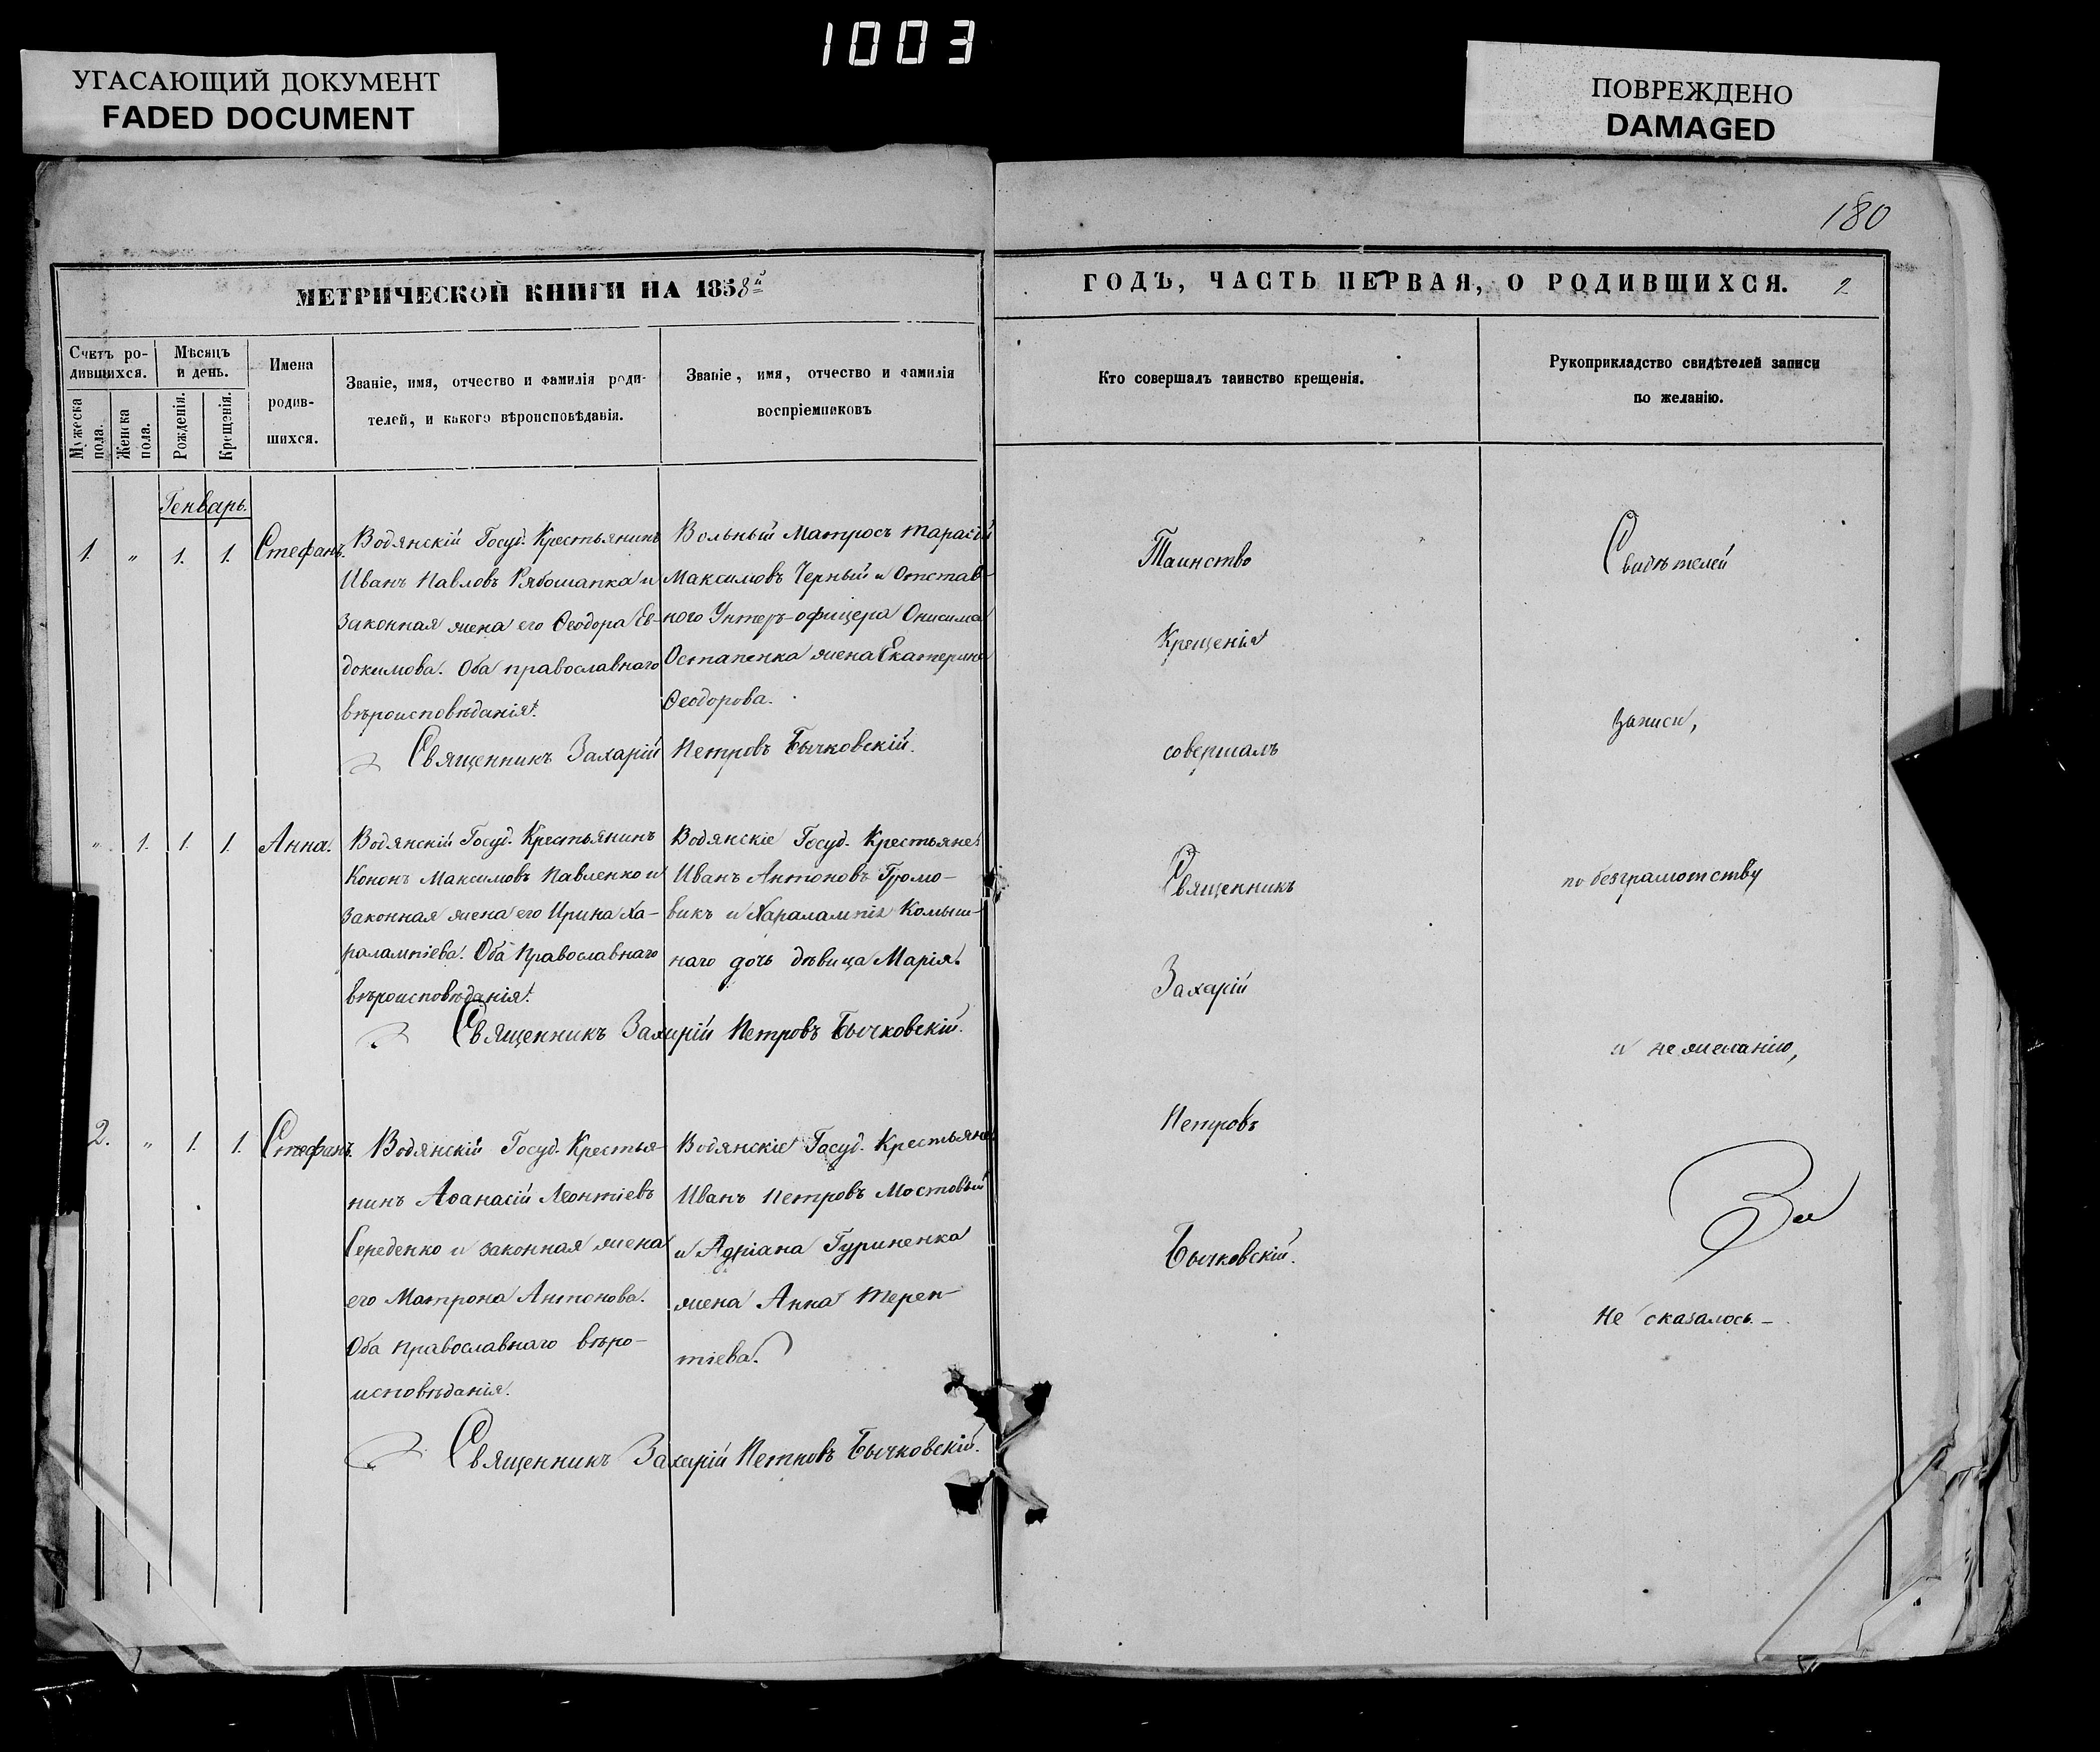 1003
УГАСАЮЩИЙ ДОКУМЕНТ
FADED DOCUMENT
ПОВРЕЖДЕНО
DAMAGED
180
МЕТРИЧЕСКОЙ КНИГИ НА 1858й
ГОДЪ, ЧАСТЬ ПЕРВАЯ, О РОДИВШИХСЯ. 2
Счетъ ро-
дившихся.
Мужеска
пола.
Женска
пола.
Мѣсяцъ
и день.
Рожденія.
Крещенія.
Имена
родив-
шихся.
Званіе, имя, отчество и фамилія роди-
телей, и какого вѣроисповѣданія.
Званіе, имя, отчество и фамилія
воспріемниковъ
Кто совершалъ таинство крещенія.
Рукоприкладство свидѣтелей записи
по желанію.
Генварь.
1. " 1. 1. Стефанъ.
Водянскій Госуд. Крестьянинъ
Иванъ Павловъ Рябошапка и
законная жена его Ѳеодора Ев-
докимова. Оба православнаго
вѣроисповѣданія.
Вольный Матросъ Тарасій
Максимовъ Черный и Отстав-
ного Унтеръ-офицера Онисима
Остапенка жена Екатерина
Ѳеодорова.
Священникъ Захарій Петровъ Бычковскій.
" 1. 1. 1. Анна.
Водянскій Госуд. Крестьянинъ
Кононъ Максимовъ Павленко и
законная жена его Ирина Ха-
ралампіева. Оба Православнаго
вѣроисповѣданія.
Водянскіе Госуд. Крестьяне
Иванъ Антоновъ Громо-
викъ и Харалампія Комыш-
наго дочь дѣвица Марія.
Священникъ Захарій Петровъ Бычковскій.
2. " 1. 1. Стефанъ.
Водянскій Госуд. Крестья-
нинъ Аѳанасій Леонтіевъ
Середенко и законная жена
его Матрона Антонова.
Оба православнаго вѣро-
исповѣданія.
Водянскіе Госуд. Крестьяне
Иванъ Петровъ Мостовый
и Адріана Гуриненка
жена Анна Терен-
тіева.
Священникъ Захарій Петровъ Бычковскій.
Таинство
Крещенія
совершалъ
Священникъ
Захарій
Петровъ
Бычковскій.
Свидѣтелей
записи,
по безграмотству
и нежеланію,
Не сказалось.-